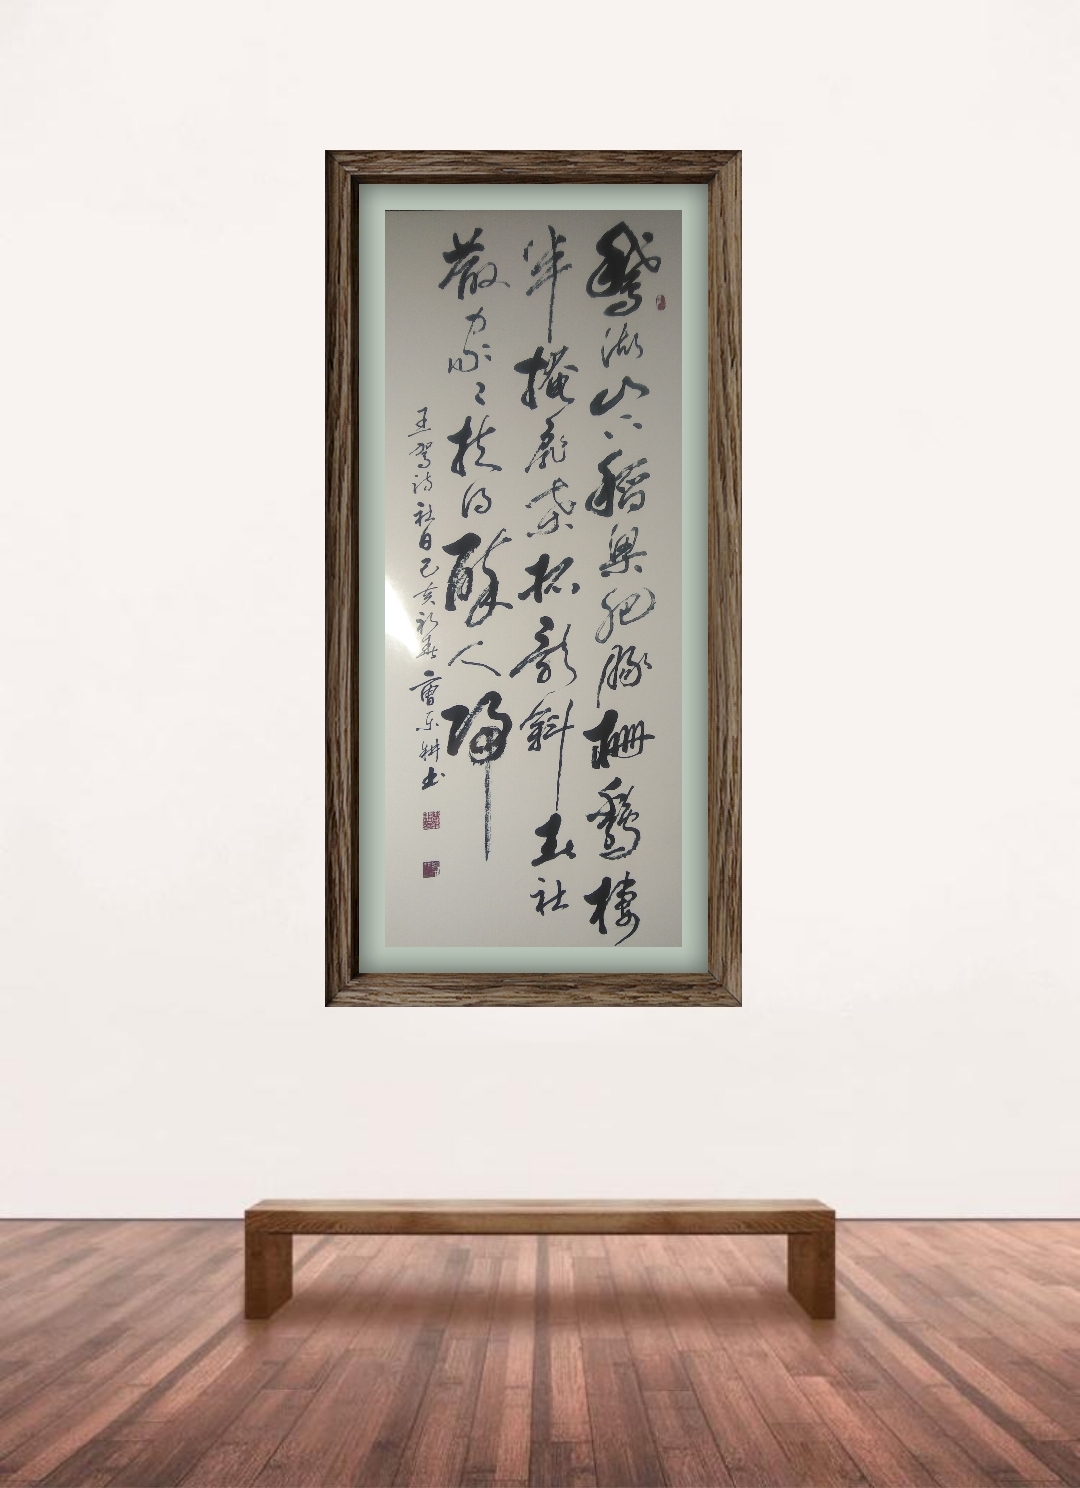 鹅湖山下稻粱肥豚栅鸡栖
半掩扉桑柘影斜春社
散家家扶得醉人归
王驾诗社日己亥初春曹东耕书